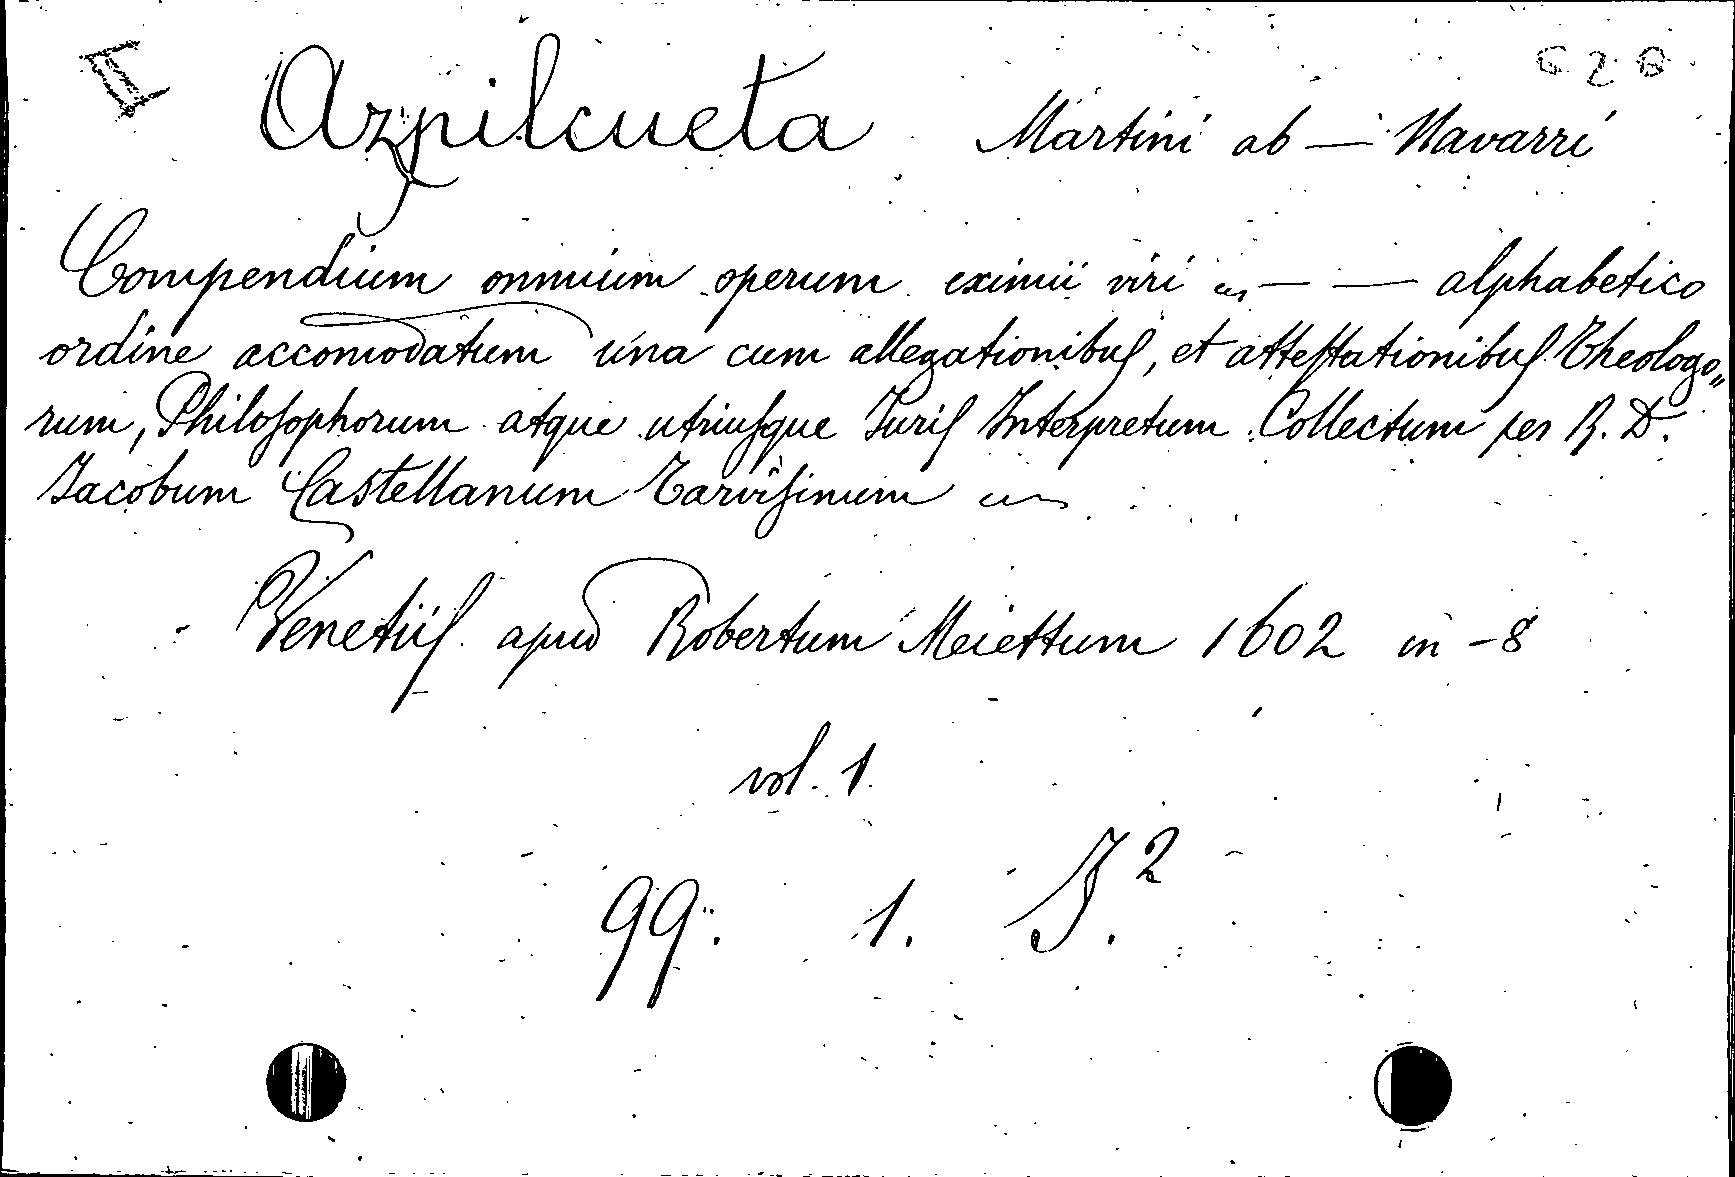 II Azpilcueta Martini ab — Navarri 620
Compendium omnium operum eximii viri — — alphabetico
ordine accomodatum una cum allegationibus, et attestationibus Theologo„
rum, Philosophorum atque utriusque Juris Interpretum Collectum per R. D.
Jacobum Castellanum Tarvisinum
Venetiis apud Robertum Meiettum 1602 in -8
vol. 1.
99. 1. J.²